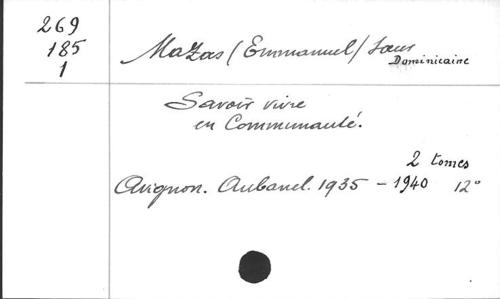 269
185
1
Mazas (Emmanuel) Sœur
Dominicaine
Savoir vivre
en Communauté.
2 tomes
Avignon. Aubanel. 1935 - 1940 12°